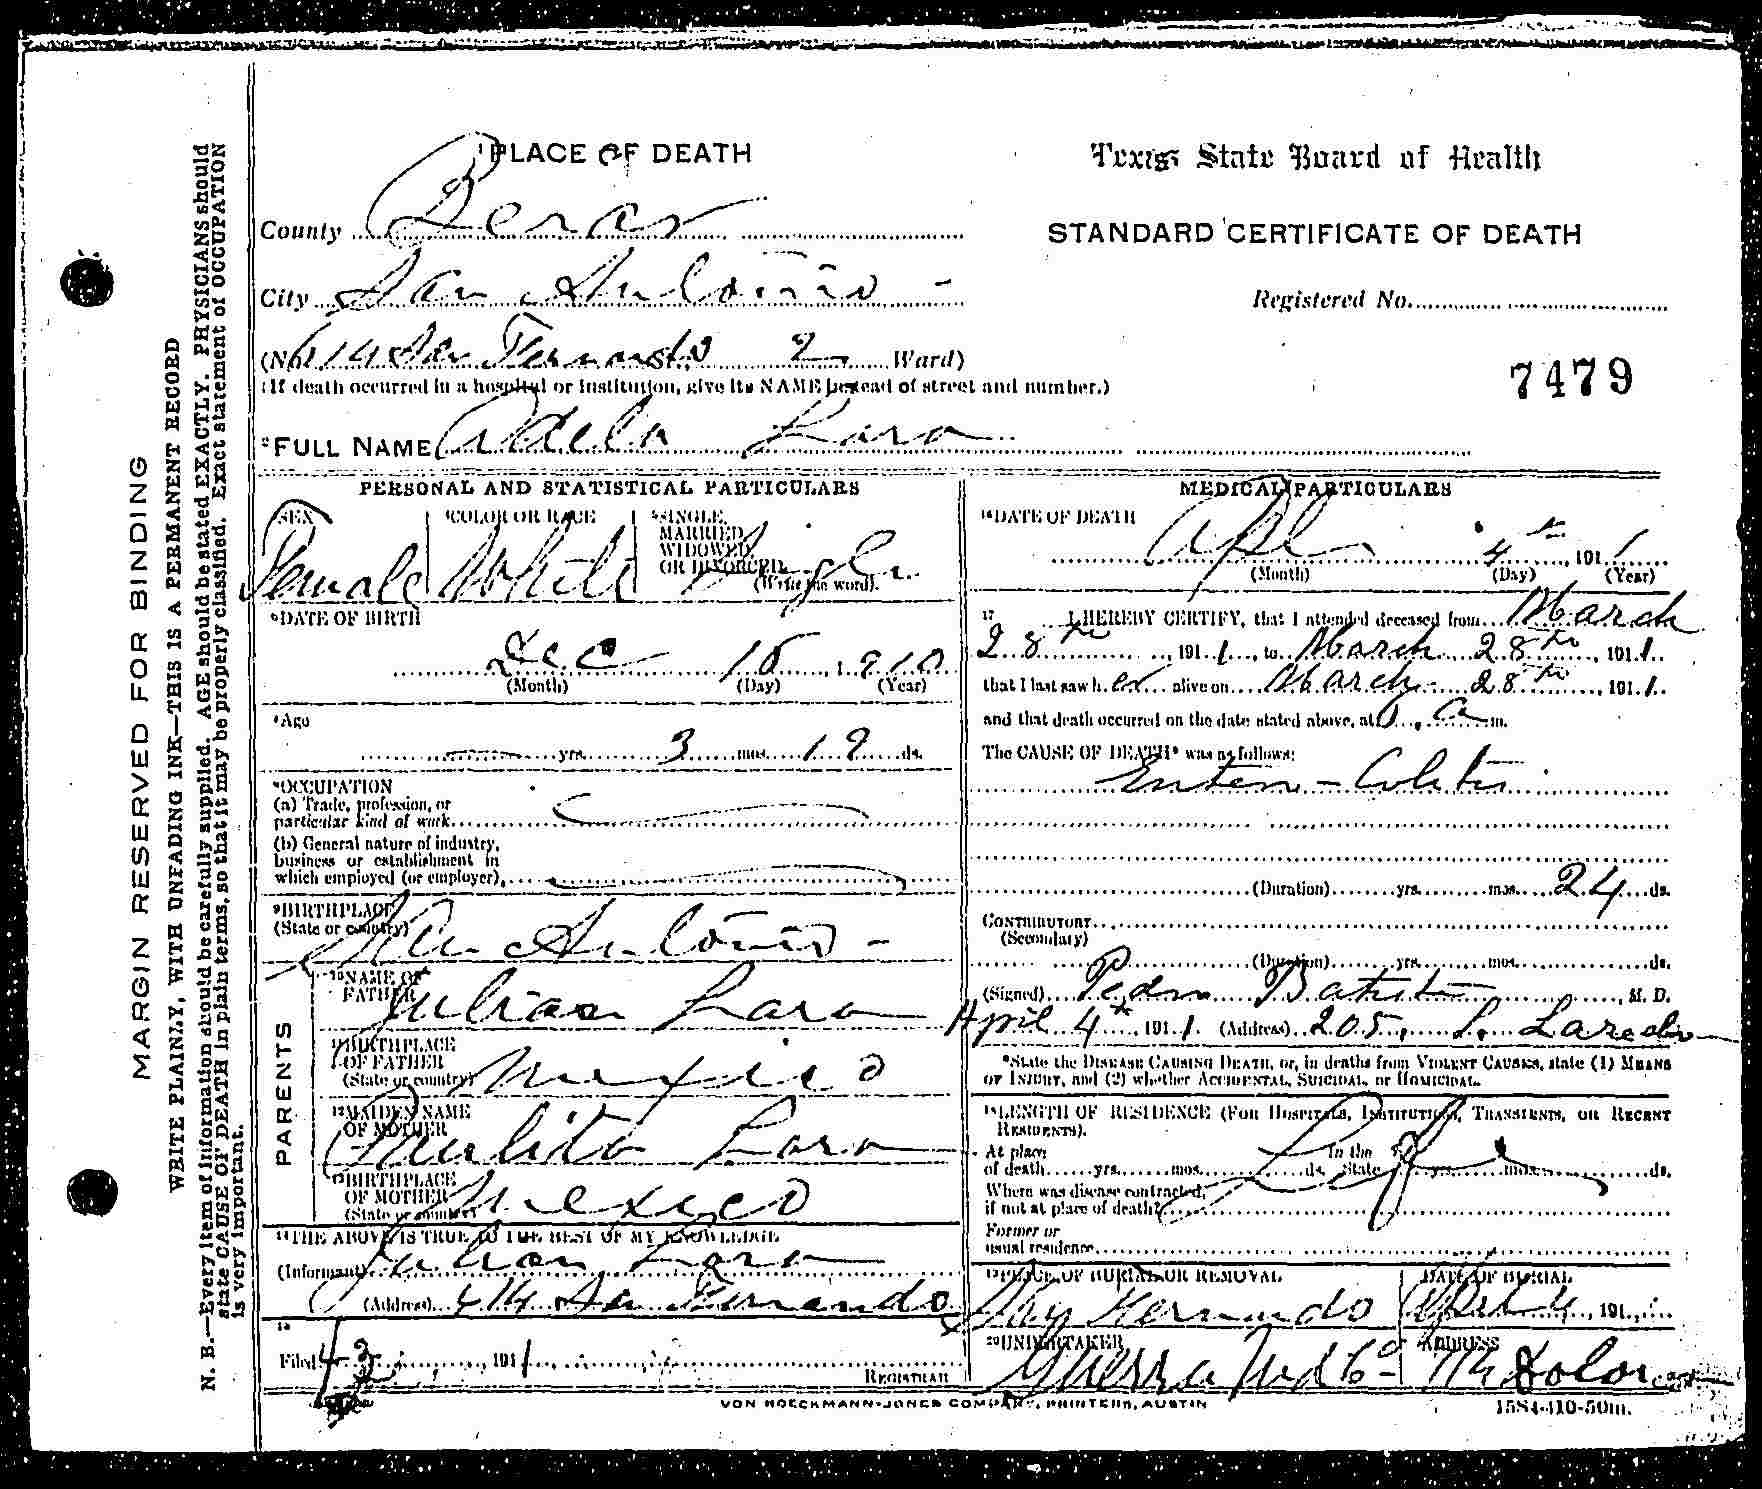 PLACE OF DEATH
County Bexar
City San Antonio -
(No. 614 San Fernando 2 Ward)
(If death occurred in a hospital or institution, give its NAME instead of street and number.)
Texas State Board of Health
STANDARD CERTIFICATE OF DEATH
Registered No.
7479
2 FULL NAME Adela Lara
PERSONAL AND STATISTICAL PARTICULARS
SEX Female
COLOR OR RACE White
SINGLE, MARRIED, WIDOWED, OR DIVORCED (Write the word). Single
6 DATE OF BIRTH
Dec 15 1910
(Month) (Day) (Year)
7 Age
— yrs. 3 mos. 19 ds.
8 OCCUPATION
(a) Trade, profession, or
particular kind of work
(b) General nature of industry,
business or establishment in
which employed (or employer)
9 BIRTHPLACE
(State or country) San Antonio -
PARENTS
10 NAME OF
FATHER Julian Lara
11 BIRTHPLACE
OF FATHER
(State or country) Mexico
12 MAIDEN NAME
OF MOTHER Lara
13 BIRTHPLACE
OF MOTHER
(State or country) Mexico
14 THE ABOVE IS TRUE TO THE BEST OF MY KNOWLEDGE
(Informant) Julian Lara
(Address) 614 San Fernando
15
Filed 4 3, 1911
REGISTRAR
MEDICAL PARTICULARS
16 DATE OF DEATH
Apl 4th, 1911
(Month) (Day) (Year)
17 I HEREBY CERTIFY, that I attended deceased from March
28th, 1911, to March 28th, 1911.
that I last saw her alive on March 28th, 1911.
and that death occurred on the date stated above, at 1. a m.
The CAUSE OF DEATH* was as follows:
Entero-Colitis
(Duration) yrs. mos. 24 ds.
CONTRIBUTORY
(Secondary)
(Duration) yrs. mos. ds.
(Signed) Pedro Batista, M. D.
April 4th, 1911. (Address) 205. S. Laredo
*State the DISEASE CAUSING DEATH, or, in deaths from VIOLENT CAUSES, state (1) MEANS
OF INJURY, and (2) whether ACCIDENTAL, SUICIDAL, or HOMICIDAL.
18 LENGTH OF RESIDENCE (FOR HOSPITALS, INSTITUTIONS, TRANSIENTS, OR RECENT
RESIDENTS).
At place In the
of death yrs. mos. ds. State yrs. mos. ds.
Life
Where was disease contracted,
if not at place of death?
Former or
usual residence
19 PLACE OF BURIAL OR REMOVAL
San Fernando
DATE OF BURIAL
April 4, 191
20 UNDERTAKER
Guerra Und Co
ADDRESS
Dolorosa
VON BOECKMANN-JONES COMPANY, PRINTERS, AUSTIN
1584-410-50m.
MARGIN RESERVED FOR BINDING
WRITE PLAINLY, WITH UNFADING INK—THIS IS A PERMANENT RECORD
N. B.—Every item of information should be carefully supplied. AGE should be stated EXACTLY. PHYSICIANS should
state CAUSE OF DEATH in plain terms, so that it may be properly classified. Exact statement of OCCUPATION
is very important.